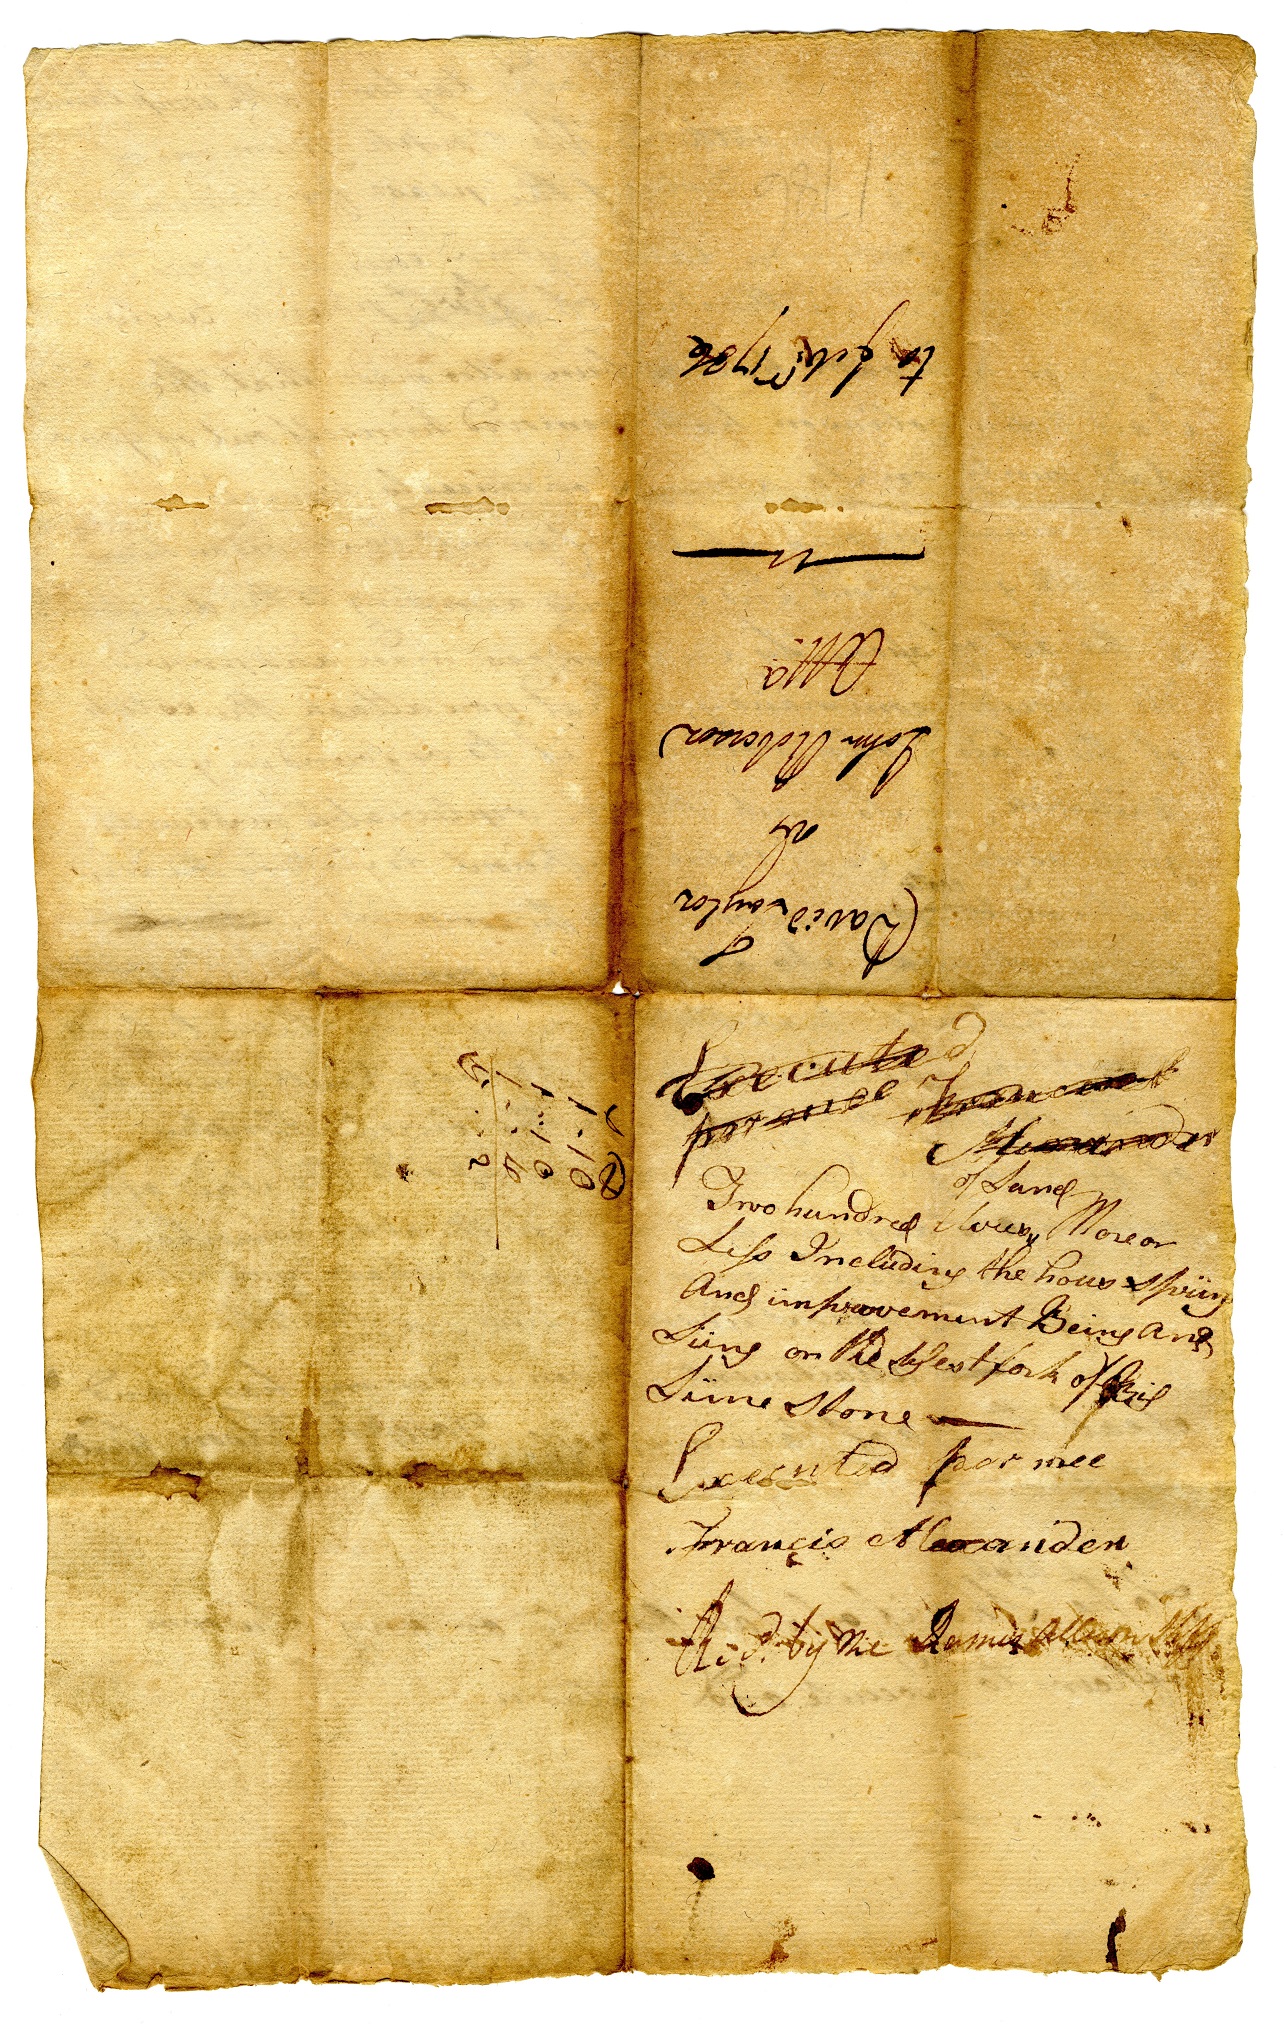 David Taylor
vs
John Roberson
Atta
to Feb.ry 1786
Executed
par me Francis
Alexander
of Land
Two hundred Acres More or
Less Including the hous Spring
And improvement Being And
Liing on the West fork of Big
Lime Stone
Executed par mee
Francis Alexander
Rd. by me James
1-10
1-10